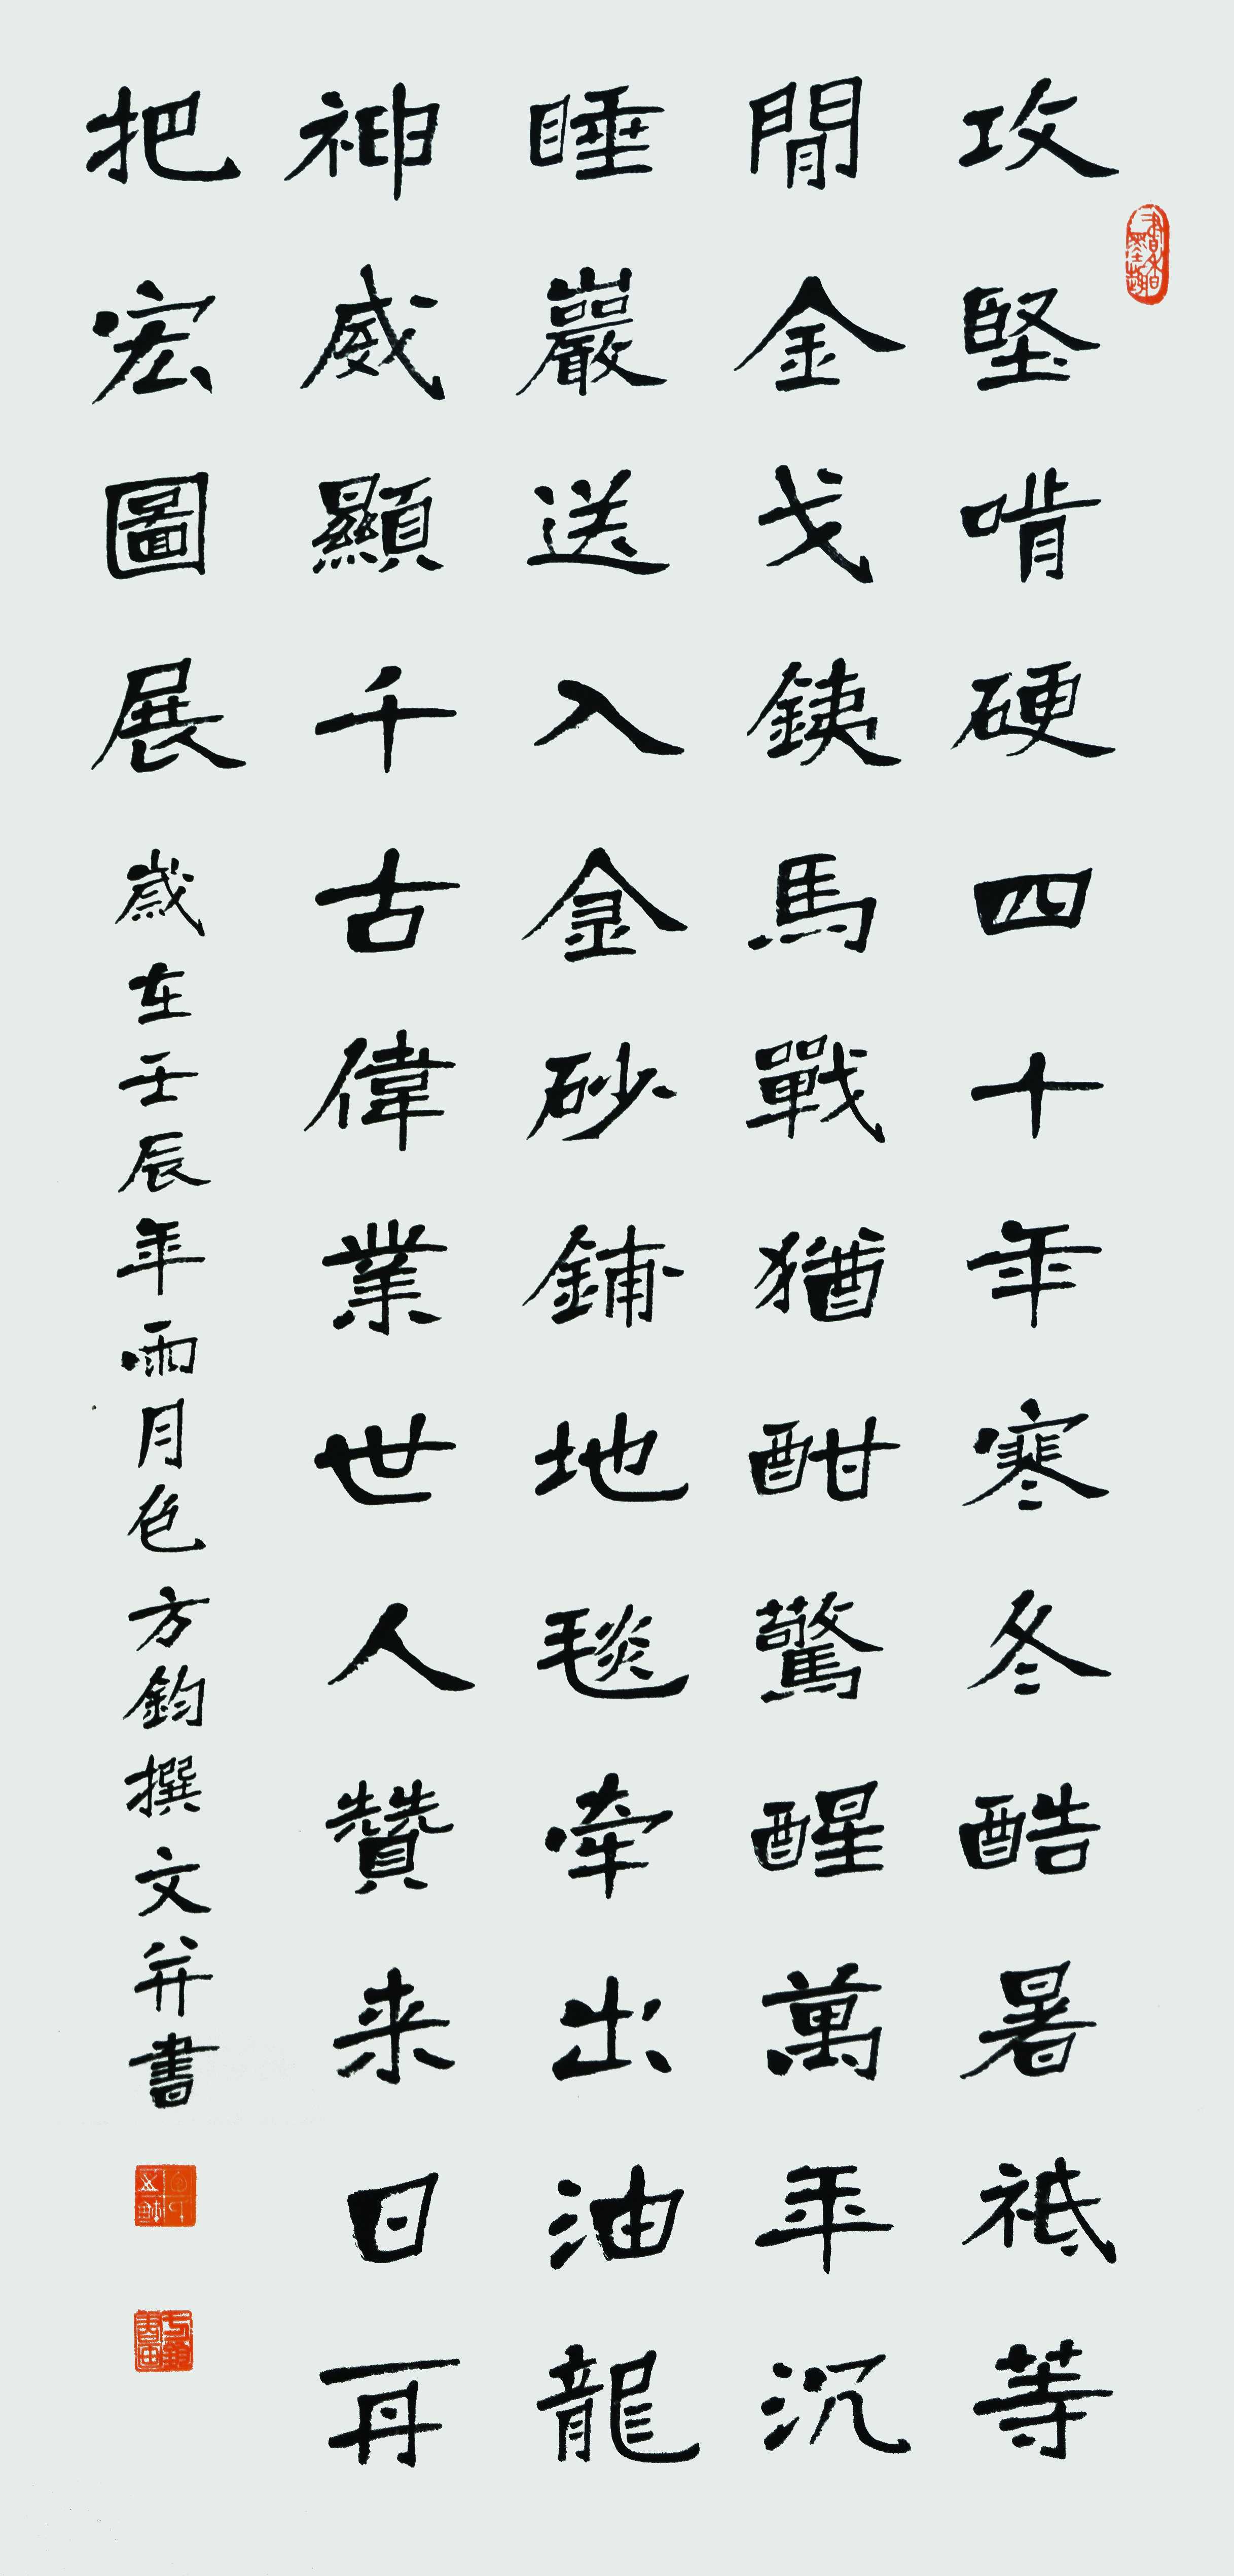 攻堅啃硬四十年寒冬酷暑祇等
閒金戈鐵馬戰猶酣驚醒萬年沉
睡巖送入金砂鋪地毯牽出油龍
神威顯千古偉業世人贊来日再
把宏圖展
歲在壬辰年雨月色方鈞撰文并書